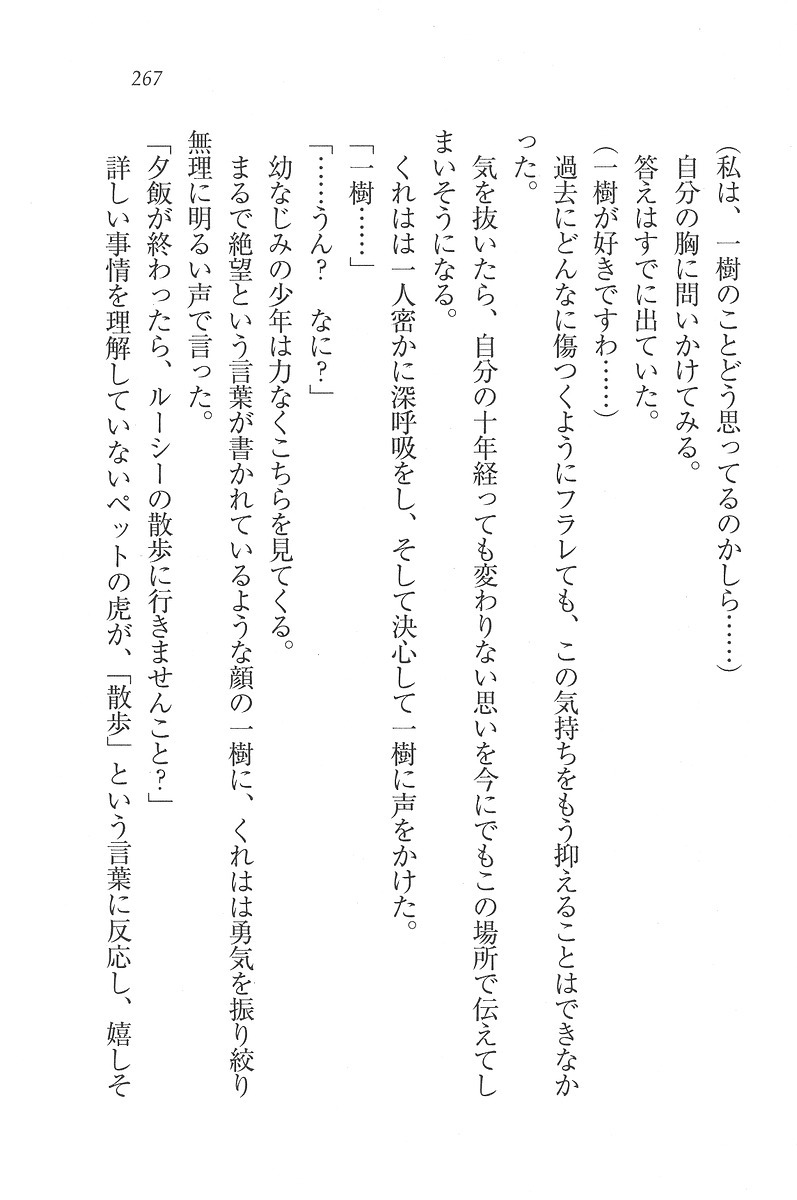 267
(私は、一樹のことどう思ってるのかしら……)
自分の胸に問いかけてみる。
答えはすでに出ていた。
(一樹が好きですわ……)
過去にどんなに傷つくようにフラレても、この気持ちをもう抑えることはできなか
った。
気を抜いたら、自分の十年経っても変わりない思いを今にでもこの場所で伝えてし
まいそうになる。
くれはは一人密かに深呼吸をし、そして決心して一樹に声をかけた。
「一樹……」
「……うん?　なに?」
幼なじみの少年は力なくこちらを見てくる。
まるで絶望という言葉が書かれているような顔の一樹に、くれはは勇気を振り絞り
無理に明るい声で言った。
「夕飯が終わったら、ルーシーの散歩に行きませんこと?」
詳しい事情を理解していないペットの虎が、「散歩」という言葉に反応し、嬉しそ